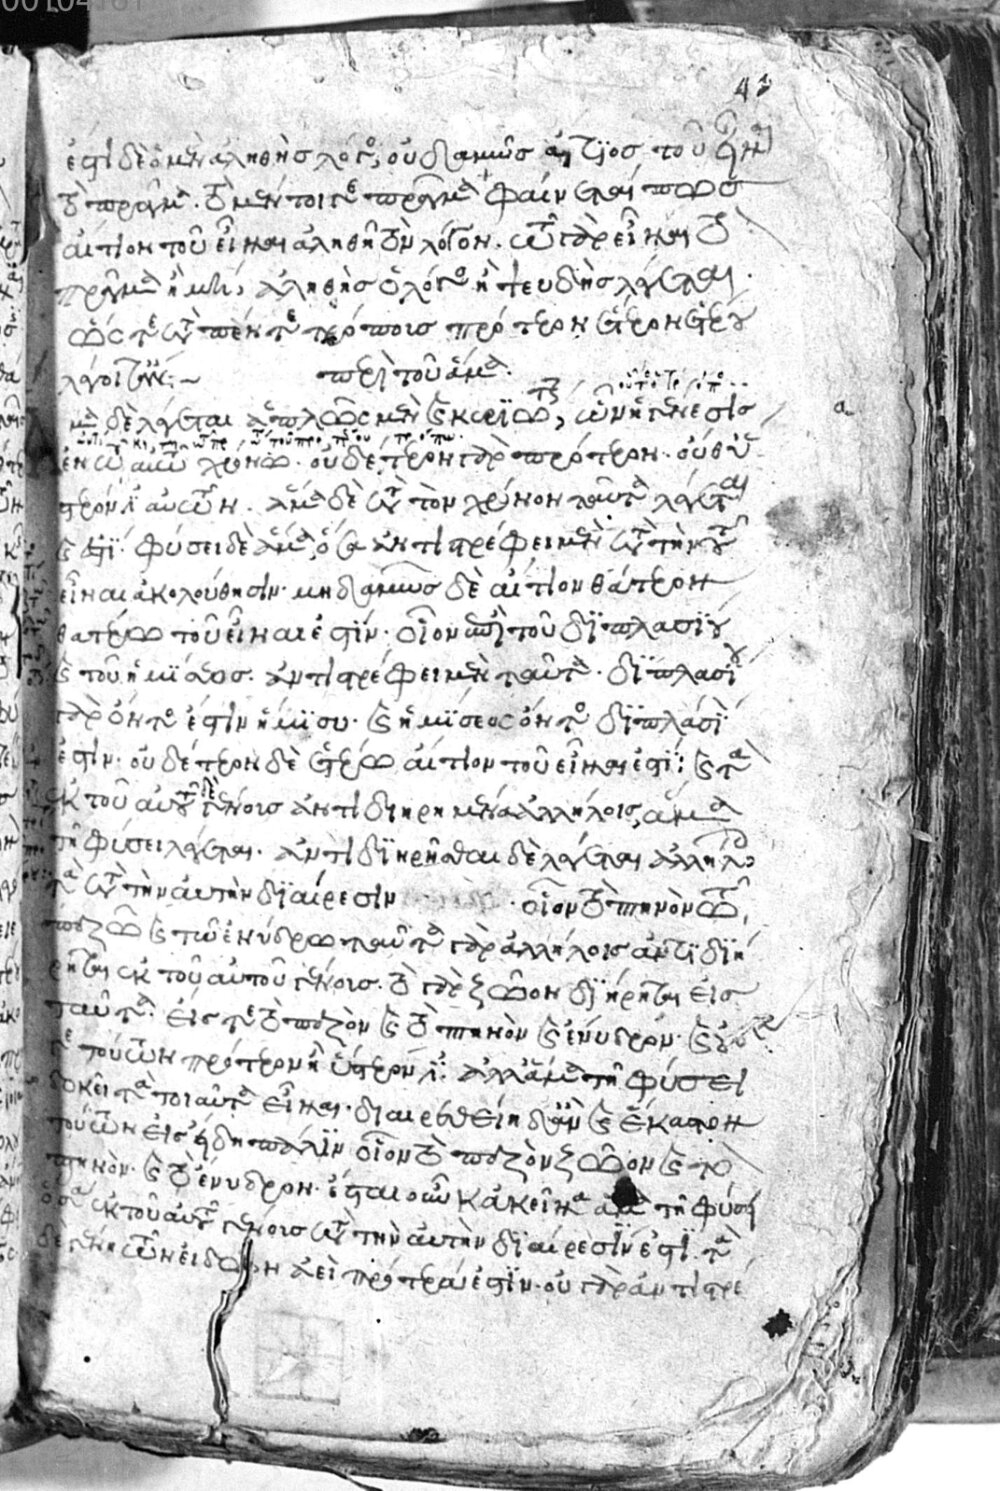 ἐστὶ δὲ ὁ μὲν ἀληθὴς λόγος, οὐδαμῶς αἴτιος τοῦ εἶναι
τὸ πρᾶγμα. τὸ μέντοι γε πρᾶγμα φαίνεται πως
αἴτιον τοῦ εἶναι ἀληθῆ τὸν λόγον. τῷ γὰρ εἶναι τὸ
πρᾶγμα ἢ μὴ, ἀληθὴς ὁ λόγος ἢ ψευδὴς λέγεται.
ὥστε κατὰ πέντε τρόπους πρότερον ἕτερον ἑτέρου
λέγοιτ' ἄν:~ περὶ τοῦ ἅμα.
μα δὲ λέγεται ἁπλῶς μὲν καὶ κυρίως, ὧν ἡ γένεσις
ἐν τῷ αὐτῷ χρόνῳ. οὐδέτερον γὰρ πρότερον. οὐδ' ὕ
στερόν ἐστι αὐτῶν. ἅμα δὲ κατὰ τὸν χρόνον ταῦτα λέγεται
ἐστί. φύσει δὲ ἅμα, ὅσα ἀντιστρέφει μὲν κατὰ τὴν τοῦ
εἶναι ἀκολούθησιν. μηδαμῶς δὲ αἴτιον θάτερον
θατέρῳ τοῦ εἶναι ἐστίν. οἷον ἐπὶ τοῦ διπλασίου
καὶ τοῦ ἡμίσεος. ἀντιστρέφει μὲν ταῦτα. διπλασίου
γὰρ ὄντος ἐστὶν ἥμισυ. καὶ ἡμίσεος ὄντος διπλάσιον
ἐστίν. οὐδέτερον δὲ ἑτέρῳ αἴτιον τοῦ εἶναι ἐστί: καὶ τὰ
ἐκ τοῦ αὐτοῦ δὲ γένους ἀντιδιῃρημένα ἀλλήλοις, ἅμα
τῇ φύσει λέγεται. ἀντιδιῃρῆσθαι δὲ λέγεται ἀλλήλοις
τὰ κατὰ τὴν αὐτὴν διαίρεσιν . οἷον τὸ πτηνὸν τῷ
πεζῷ καὶ τῷ ἐνύδρῳ ταῦτα γὰρ ἀλλήλοις ἀντιδιῄ
ρηται ἐκ τοῦ αὐτοῦ γένους. τὸ γὰρ ζῷον διῄρηται εἰς
ταῦτα. εἴς τε τὸ πεζὸν καὶ τὸ πτηνὸν καὶ ἔνυδρον. καὶ οὐδέν
γε τούτων πρότερον ἢ ὕστερόν ἐστι. ἀλλ' ἅμα τῇ φύσει
δοκεῖ τὰ τοιαῦτα εἶναι. διαιρεθείη δ' ἂν καὶ ἕκαστον
τούτων εἰς εἴδη πάλιν οἷον τὸ πεζὸν ζῷον καὶ τὸ
πτηνὸν. καὶ τὸ ἔνυδρον. ἔσται οὖν κἀκεῖνα ἅμα τῇ φύσει
ὅσα ἐκ τοῦ αὐτοῦ γένους κατὰ τὴν αὐτὴν διαίρεσίν ἐστι. τὰ
δὲ γένη τῶν εἰδῶν ἀεὶ πρότερά ἐστιν. οὐ γὰρ ἀντιστρέ